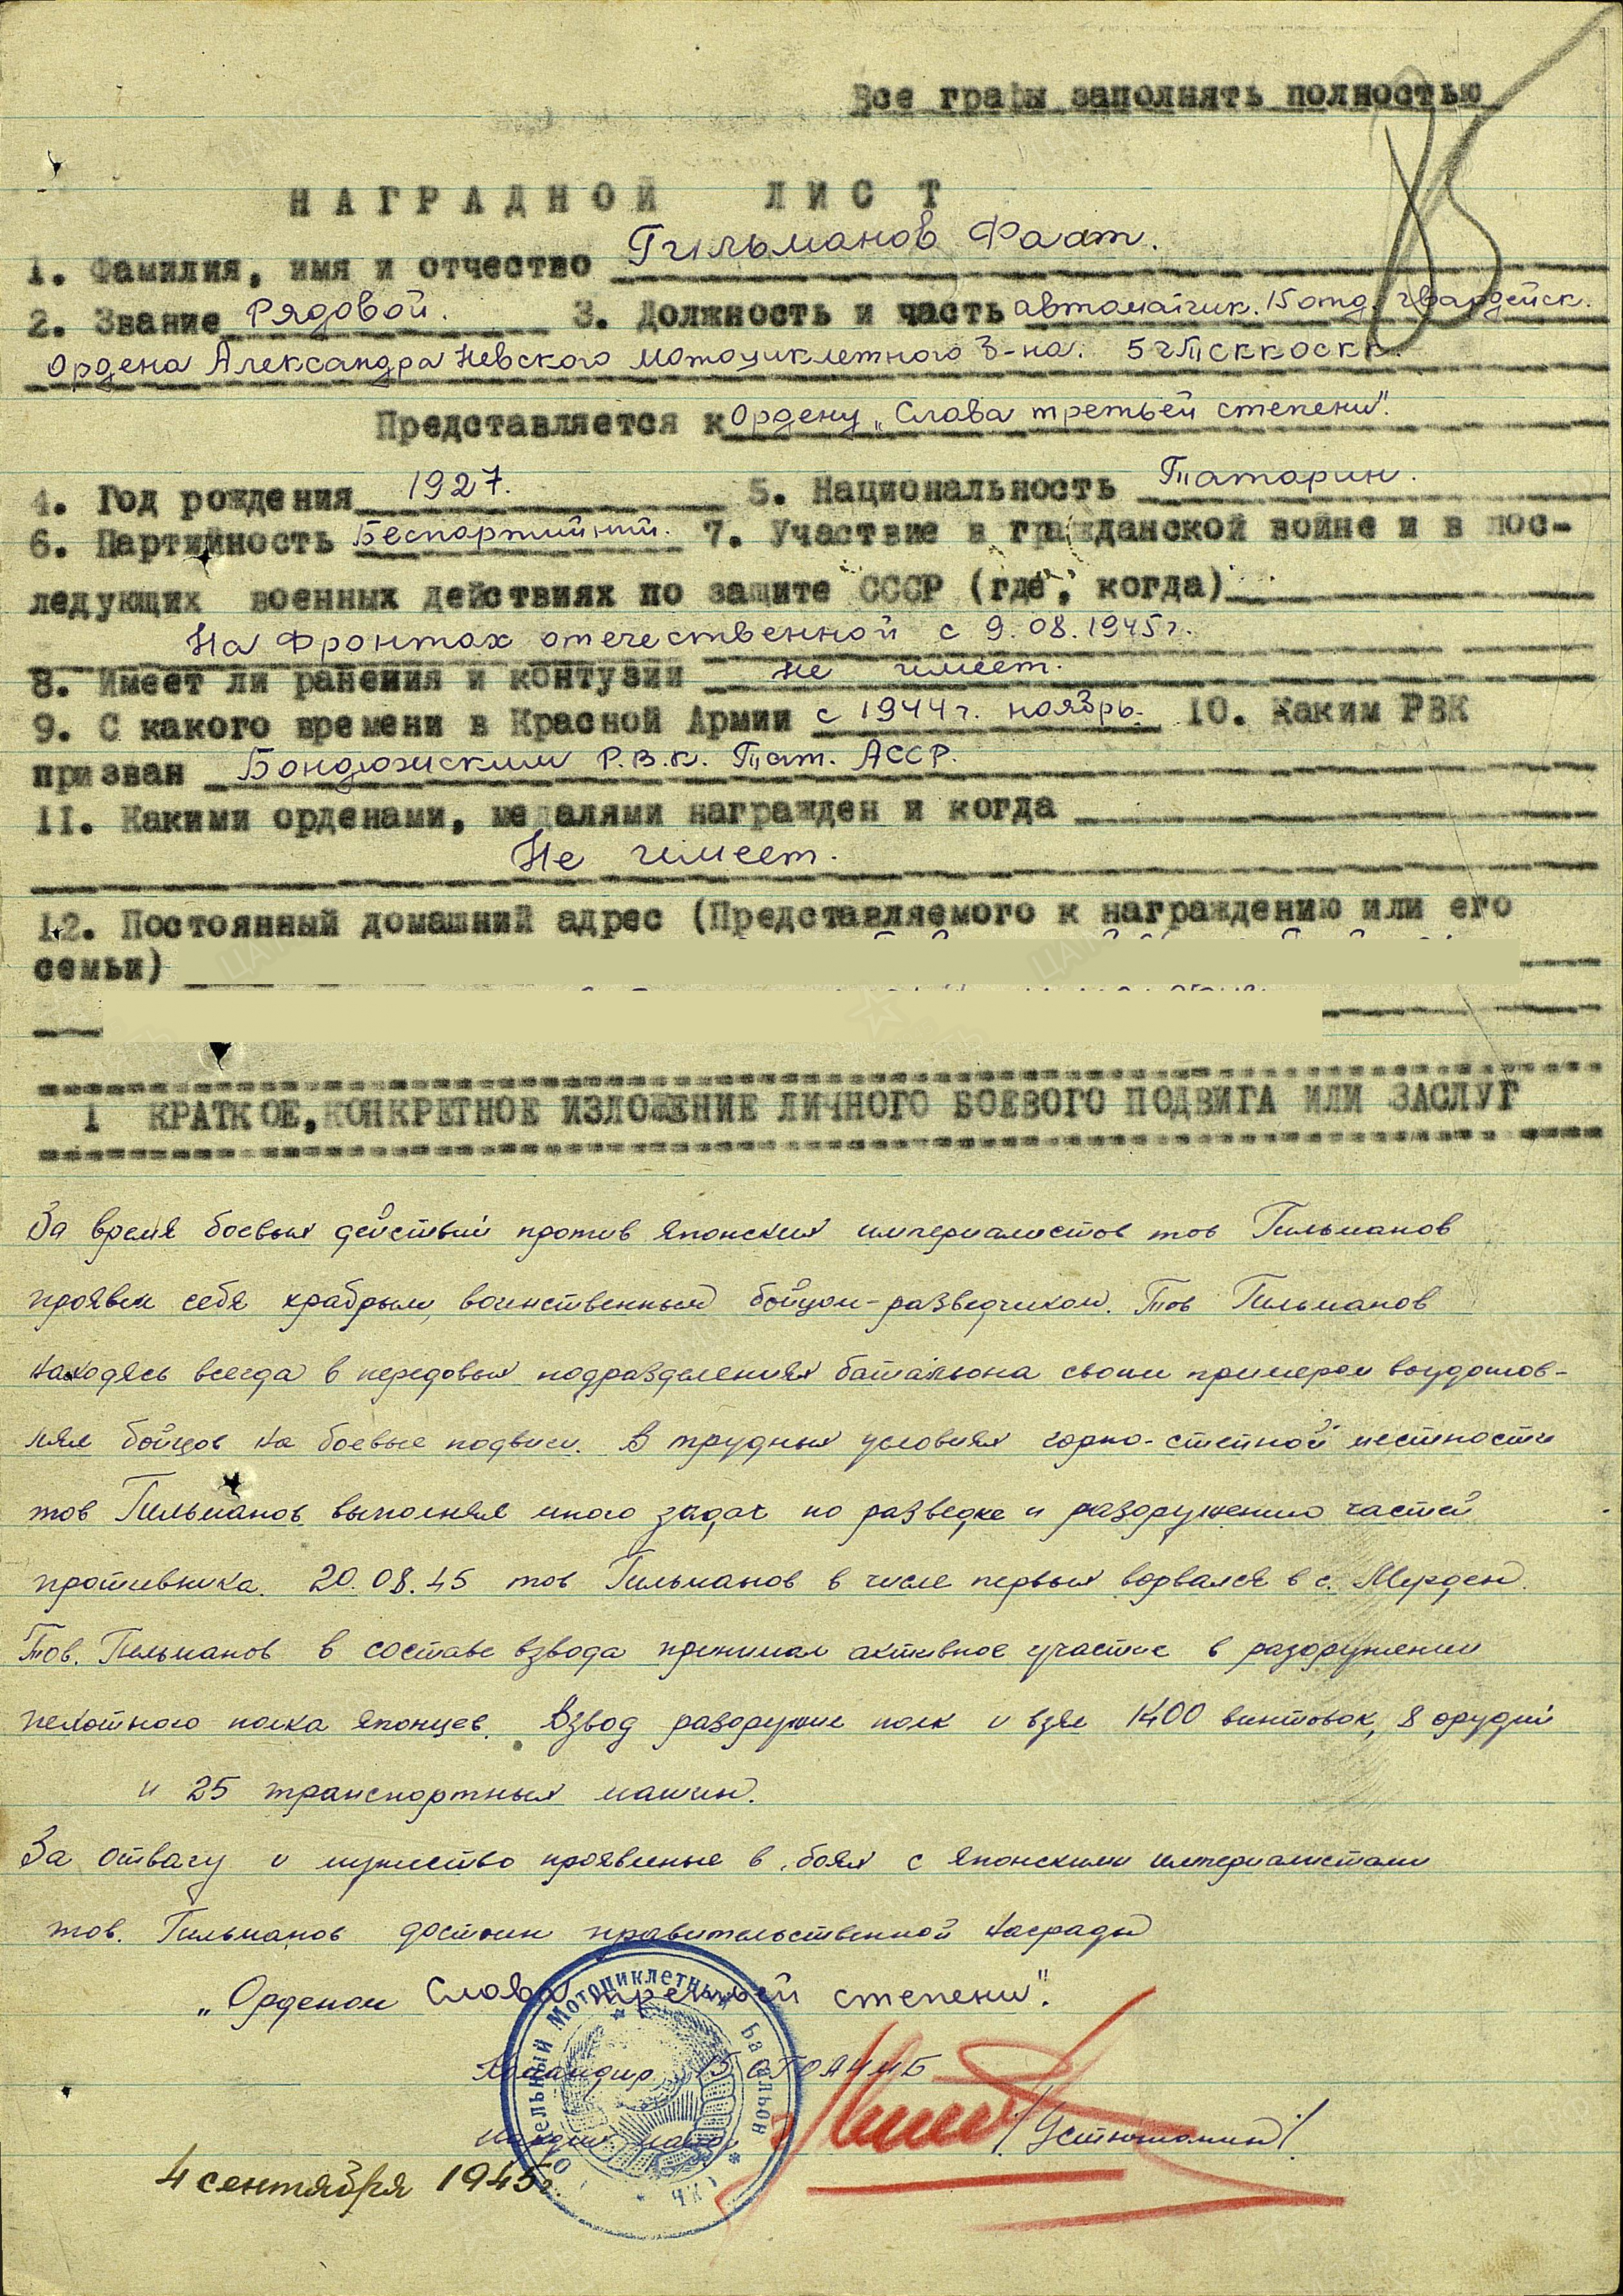 Все графы заполнять полностью
85
НАГРАДНОЙ ЛИСТ
1. Фамилия, имя и отчество Гильманов Фаат.
2. Звание Рядовой. 3. Должность и часть автоматчик. 15 отд. гвардейск.
Ордена Александра Невского мотоциклетного Б-на. 5 гТСККОСКК.
Представляется к Ордену „Слава третьей степени".
4. Год рождения 1927. 5. Национальность Татарин.
6. Партийность Беспартийний. 7. Участвие в гражданской войне и в пос-
ледующих военных действиях по защите СССР (где, когда)
На Фронтах отечественной с 9.08.1945г.
8. Имеет ли ранения и контузии не имеет.
9. С какого времени в Красной Армии с 1944г. ноябрь. 10. Каким РВК
призван Бондюжским Р.В.К. Тат. АССР.
11. Какими орденами, медалями награжден и когда
Не имеет.
12. Постоянный домашний адрес (Представляемого к награждению или его
семьи)
1 КРАТКОЕ, КОНКРЕТНОЕ ИЗЛОЖЕНИЕ ЛИЧНОГО БОЕВОГО ПОДВИГА ИЛИ ЗАСЛУГ
За время боевых действий против японских империалистов тов Гильманов
проявил себя храбрым, воинственным бойцом-разведчиком. Тов Гильманов
находясь всегда в передовых подразделениях батальона своим примером
лял бойцов на боевые подвиги. В трудных условиях горно-степной местности
тов Гильманов выполнял много задач по разведке и разоружению частей
противника. 20.08.45 тов Гильманов в числе первых ворвался в г.
Тов. Гильманов в составе взвода принимал активное участие в разоружении
пехотного полка японцев. Взвод разоружил полк и взял 1400 винтовок, 8 орудий
и 25 транспортных машин.
За отвагу и мужество проявленые в боях с японскими империалистами
тов. Гильманов достоин правительственной награды
„Орденом Слава третьей степени".
Командир 15 ОГОАНМБ
Гвардии майор /Устюмонин/
4 сентября 1945г.
Отдельный Мотоциклетный Батальон